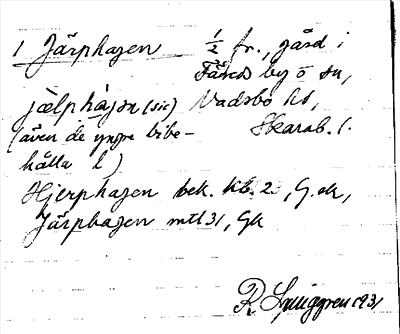 1 Järphagen ½ fr., gård i
Färed by o sn,
jælphàgən (sic) Vadsbo hd,
(även de yngre bibe- Skarab. l.
hålla l)
Hjerphagen bek. Kb. 2, G. ek,
Järphagen mtl 31, Gk
R. Ljunggren 1931